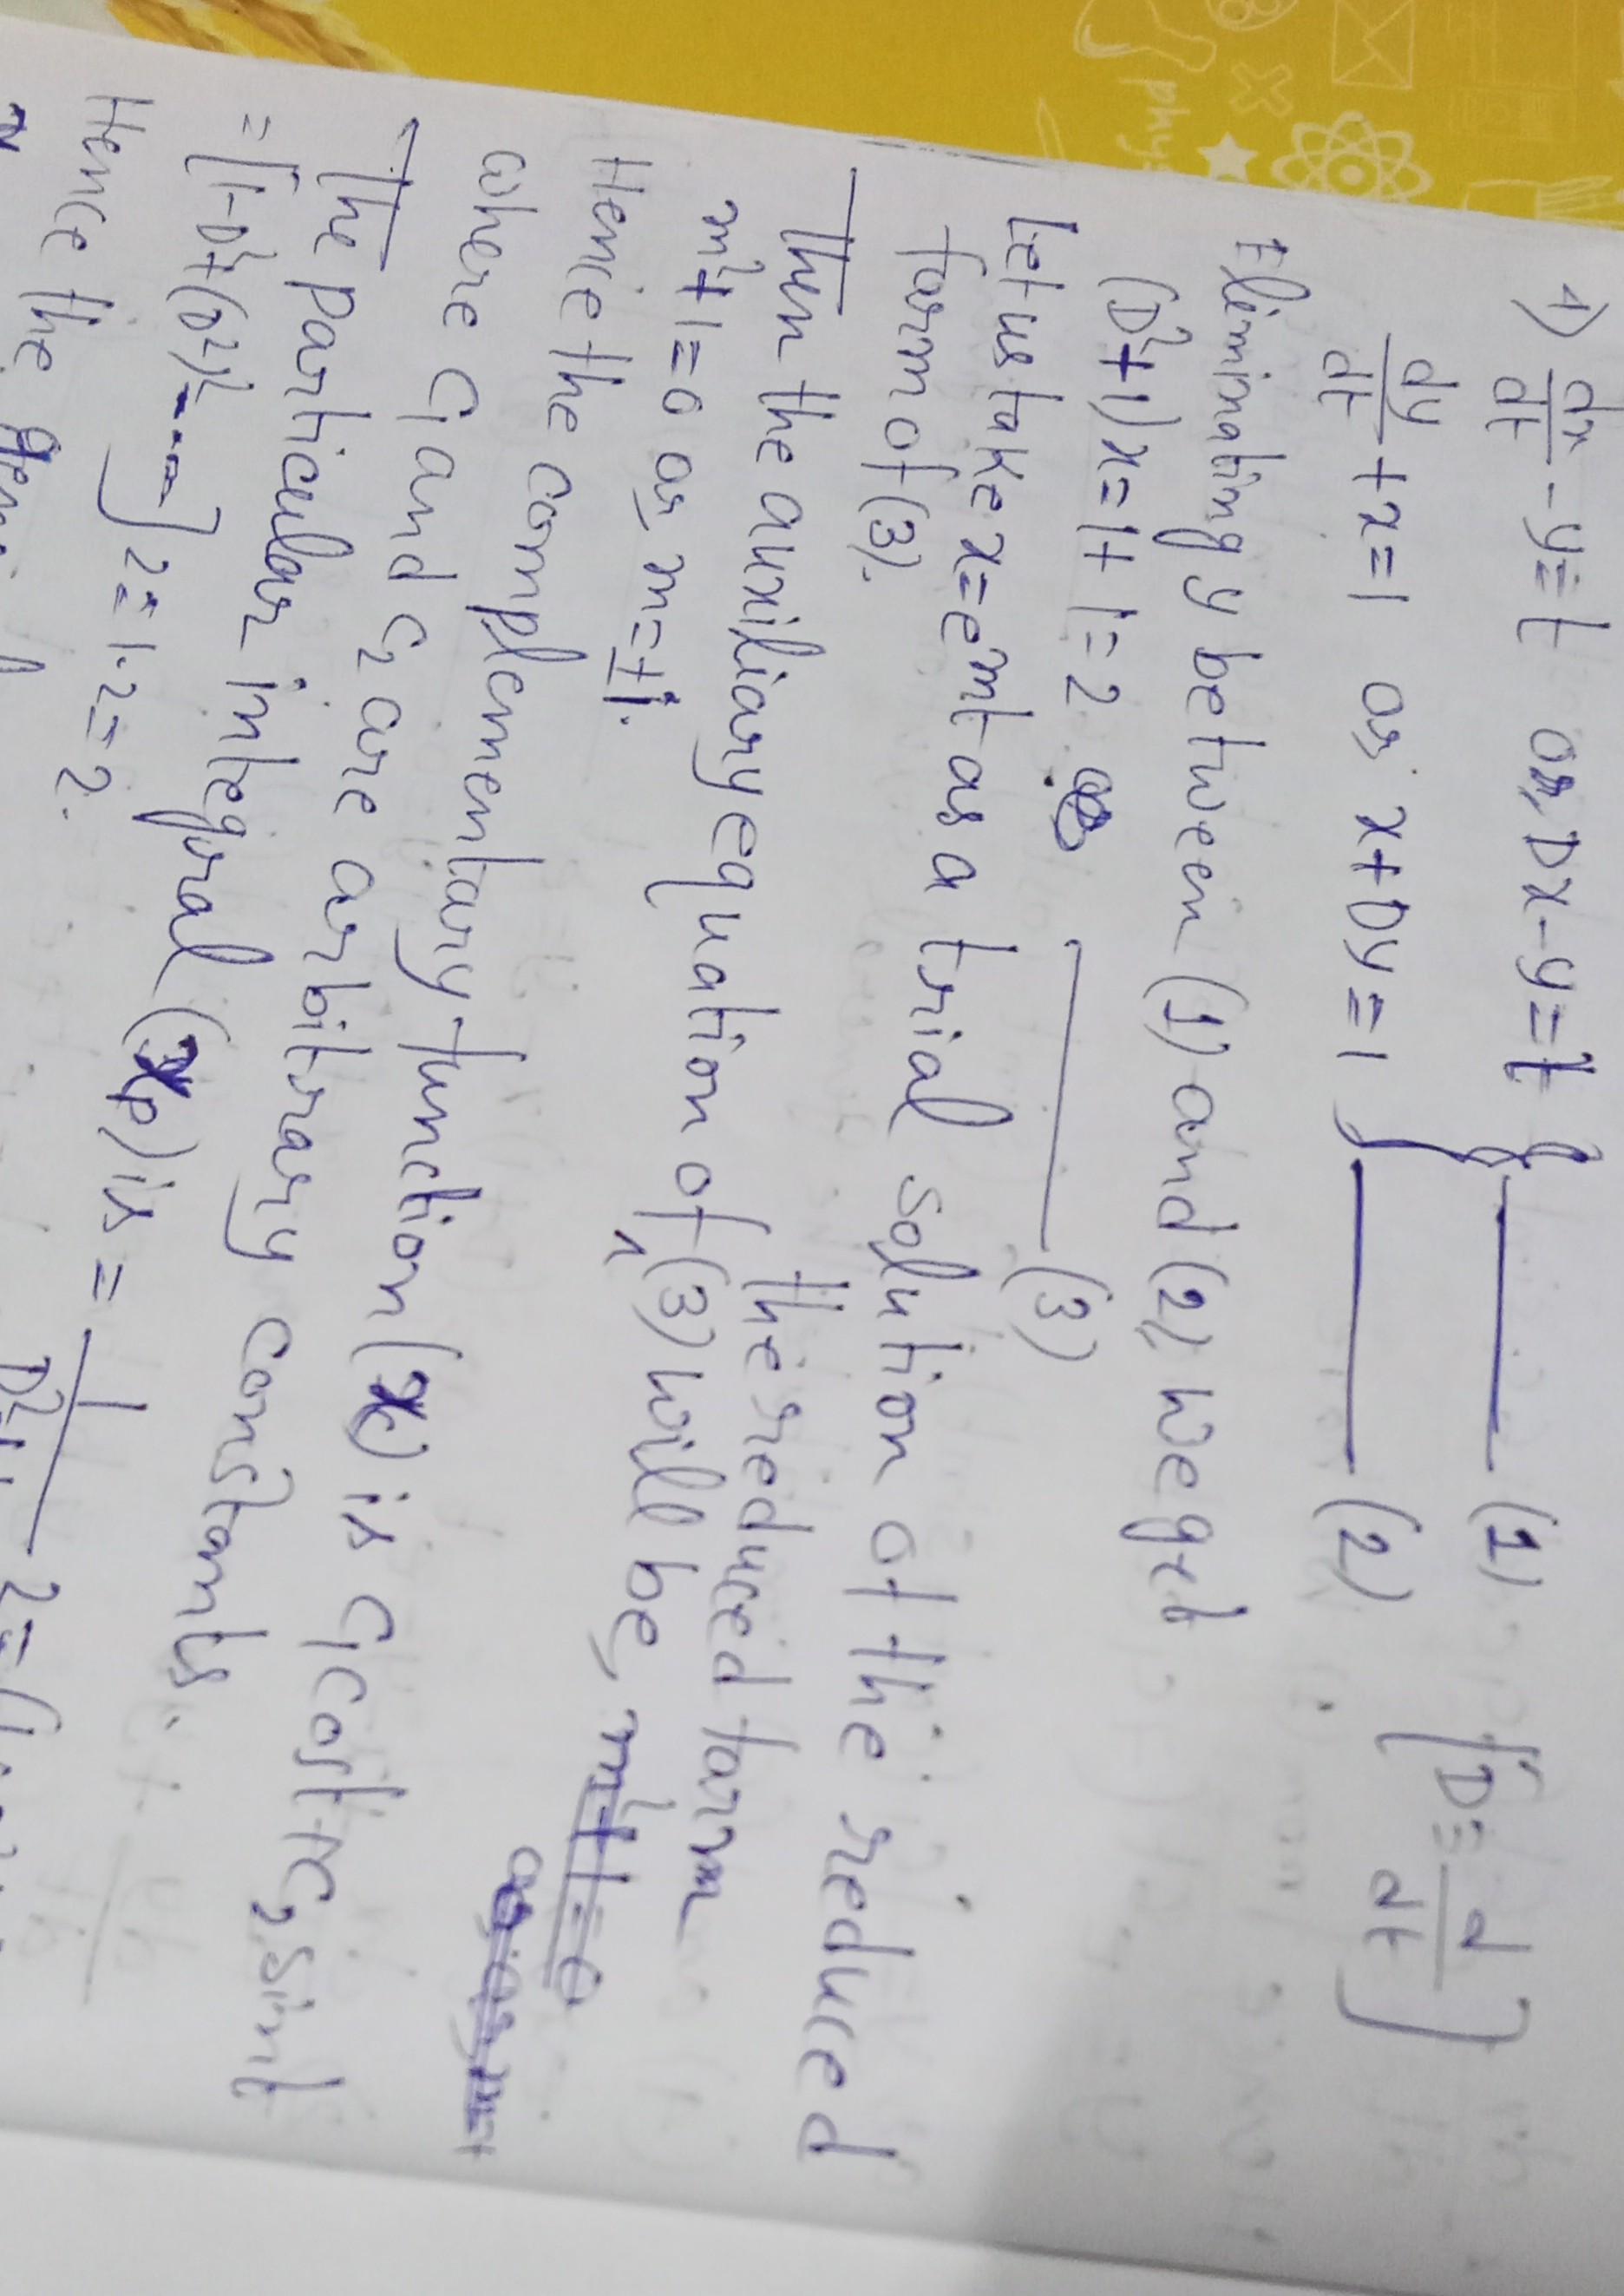 1) dx/dt - y = t or, Dx - y = t } —— (1)
dy/dt + x = 1 or x + Dy = 1 —— (2) [D ≡ d/dt]
Eliminating y between (1) and (2) we get
(D²+1)x = 1+1 = 2 —— (3)
Let us take x = e^mt as a trial solution of the reduced
form of (3).
Then the auxiliary equation of the reduced form (3) will be
m²+1=0 or m=±i.
Hence the complementary function (x) is C₁cost+C₂sint
where C₁ and C₂ are arbitrary constants.
The particular integral (xp) is = 1/D²+1 2 =
= [1-D²+(D²)²-...] 2 = 1.2 = 2.
Hence the
physi